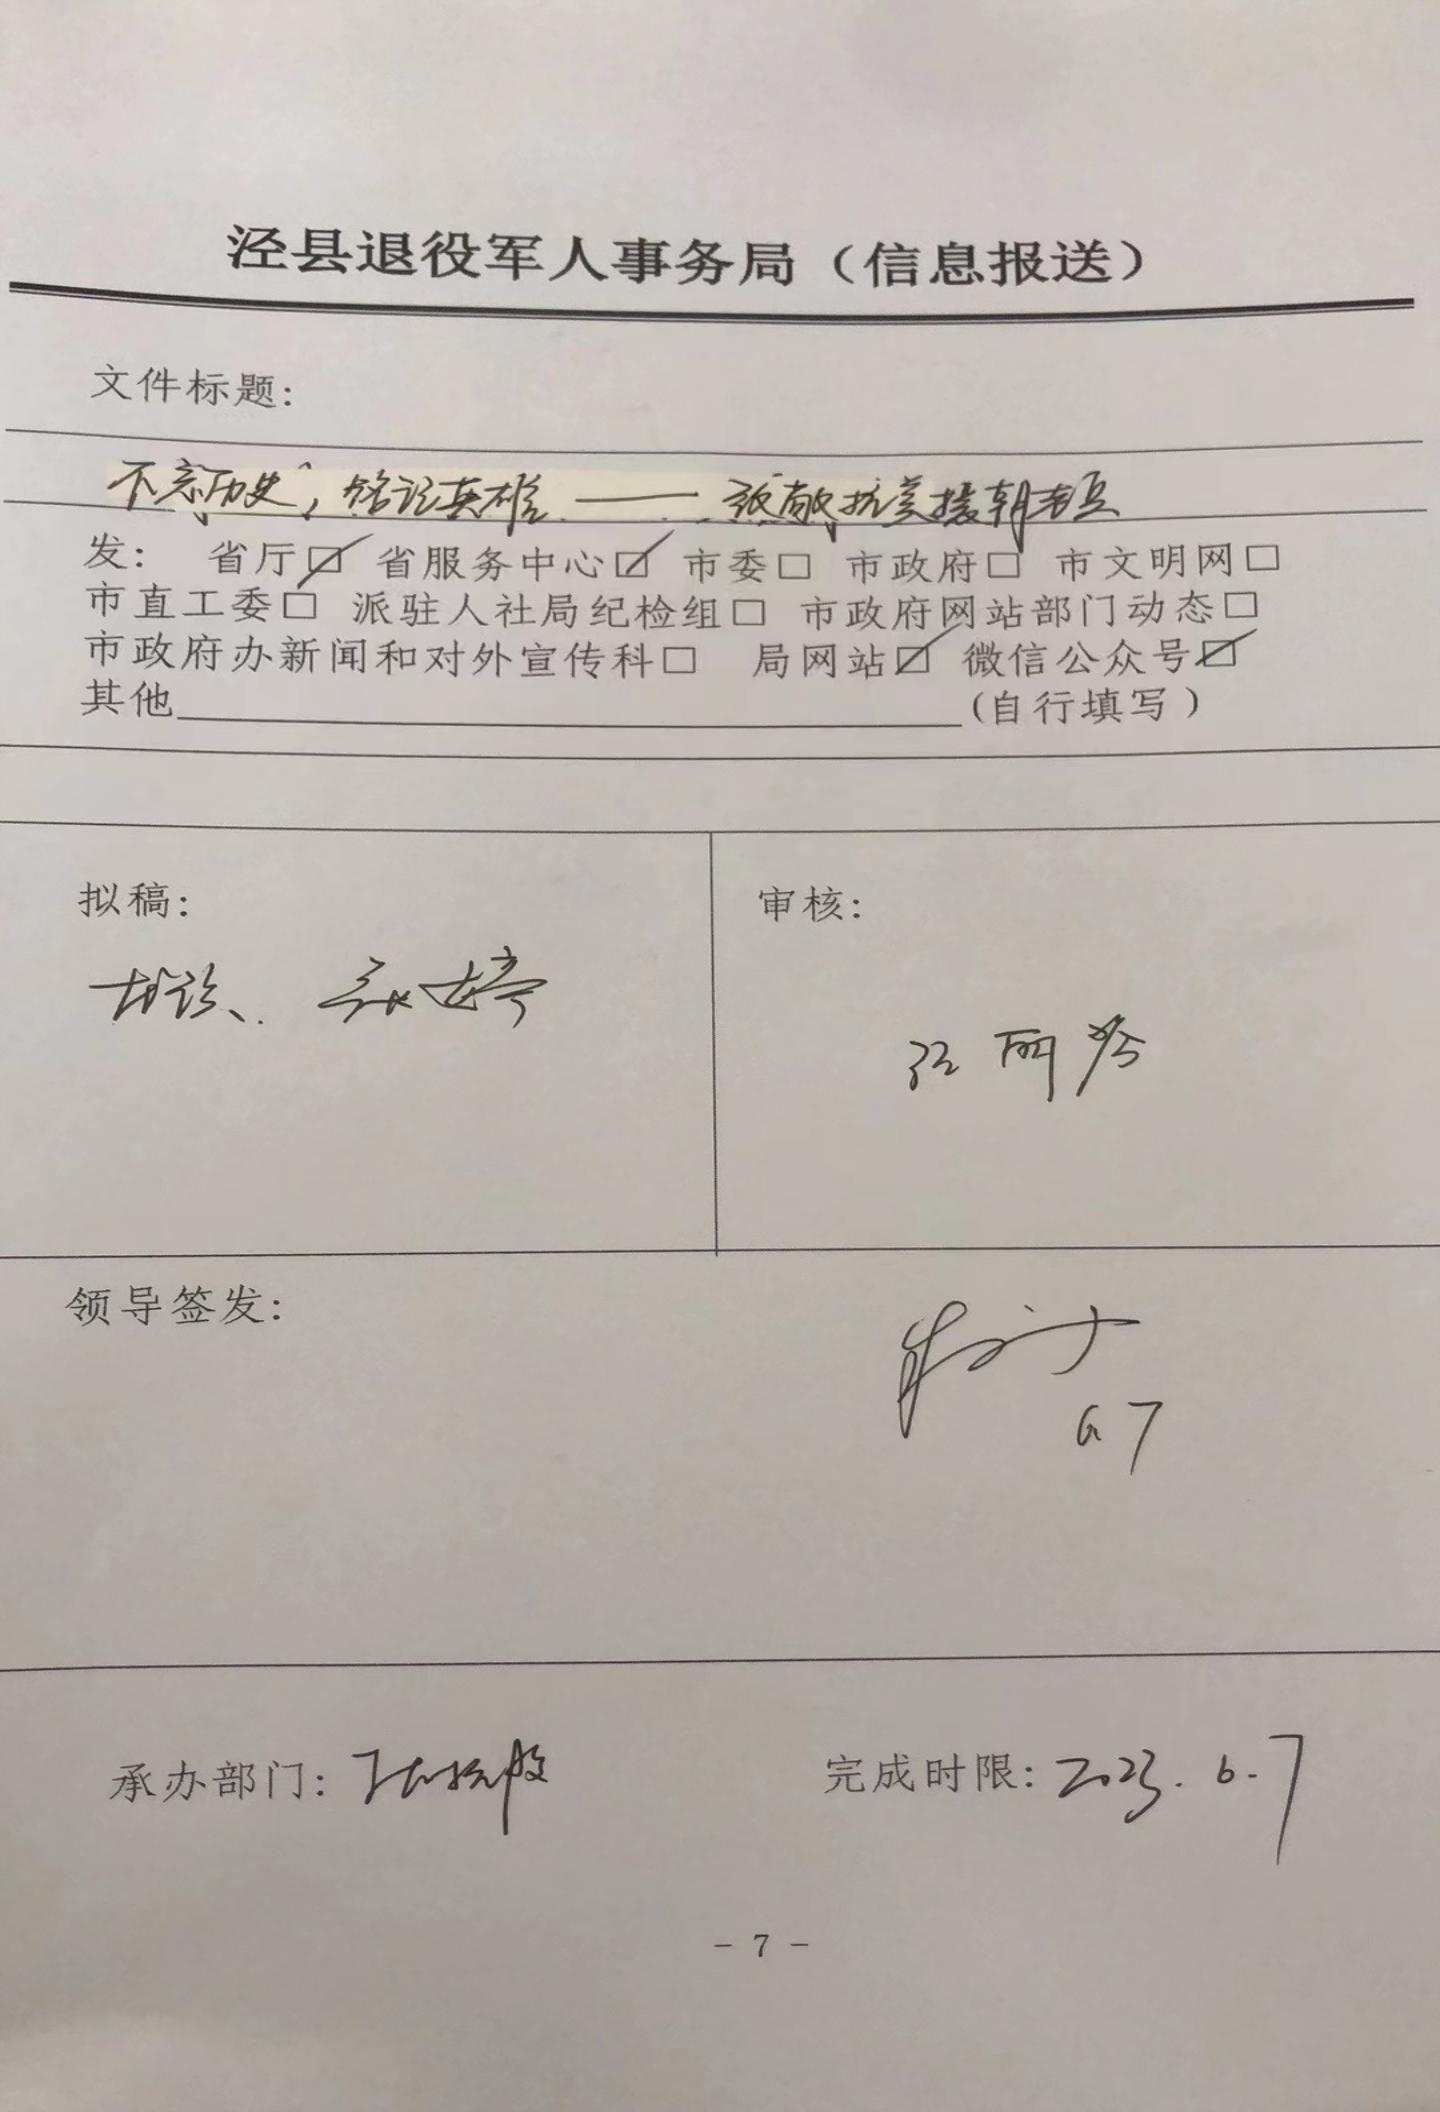 泾县退役军人事务局（信息报送）
文件标题：
不忘历史，铭记英雄——致敬抗美援朝老兵
发： 省厅☑ 省服务中心☑ 市委□ 市政府□ 市文明网□
市直工委□ 派驻人社局纪检组□ 市政府网站部门动态□
市政府办新闻和对外宣传科□ 局网站☑ 微信公众号☑
其他（自行填写）
拟稿： 审核：
江丽芬
领导签发：
6.7
承办部门： 完成时限：2023.6.7
- 7 -